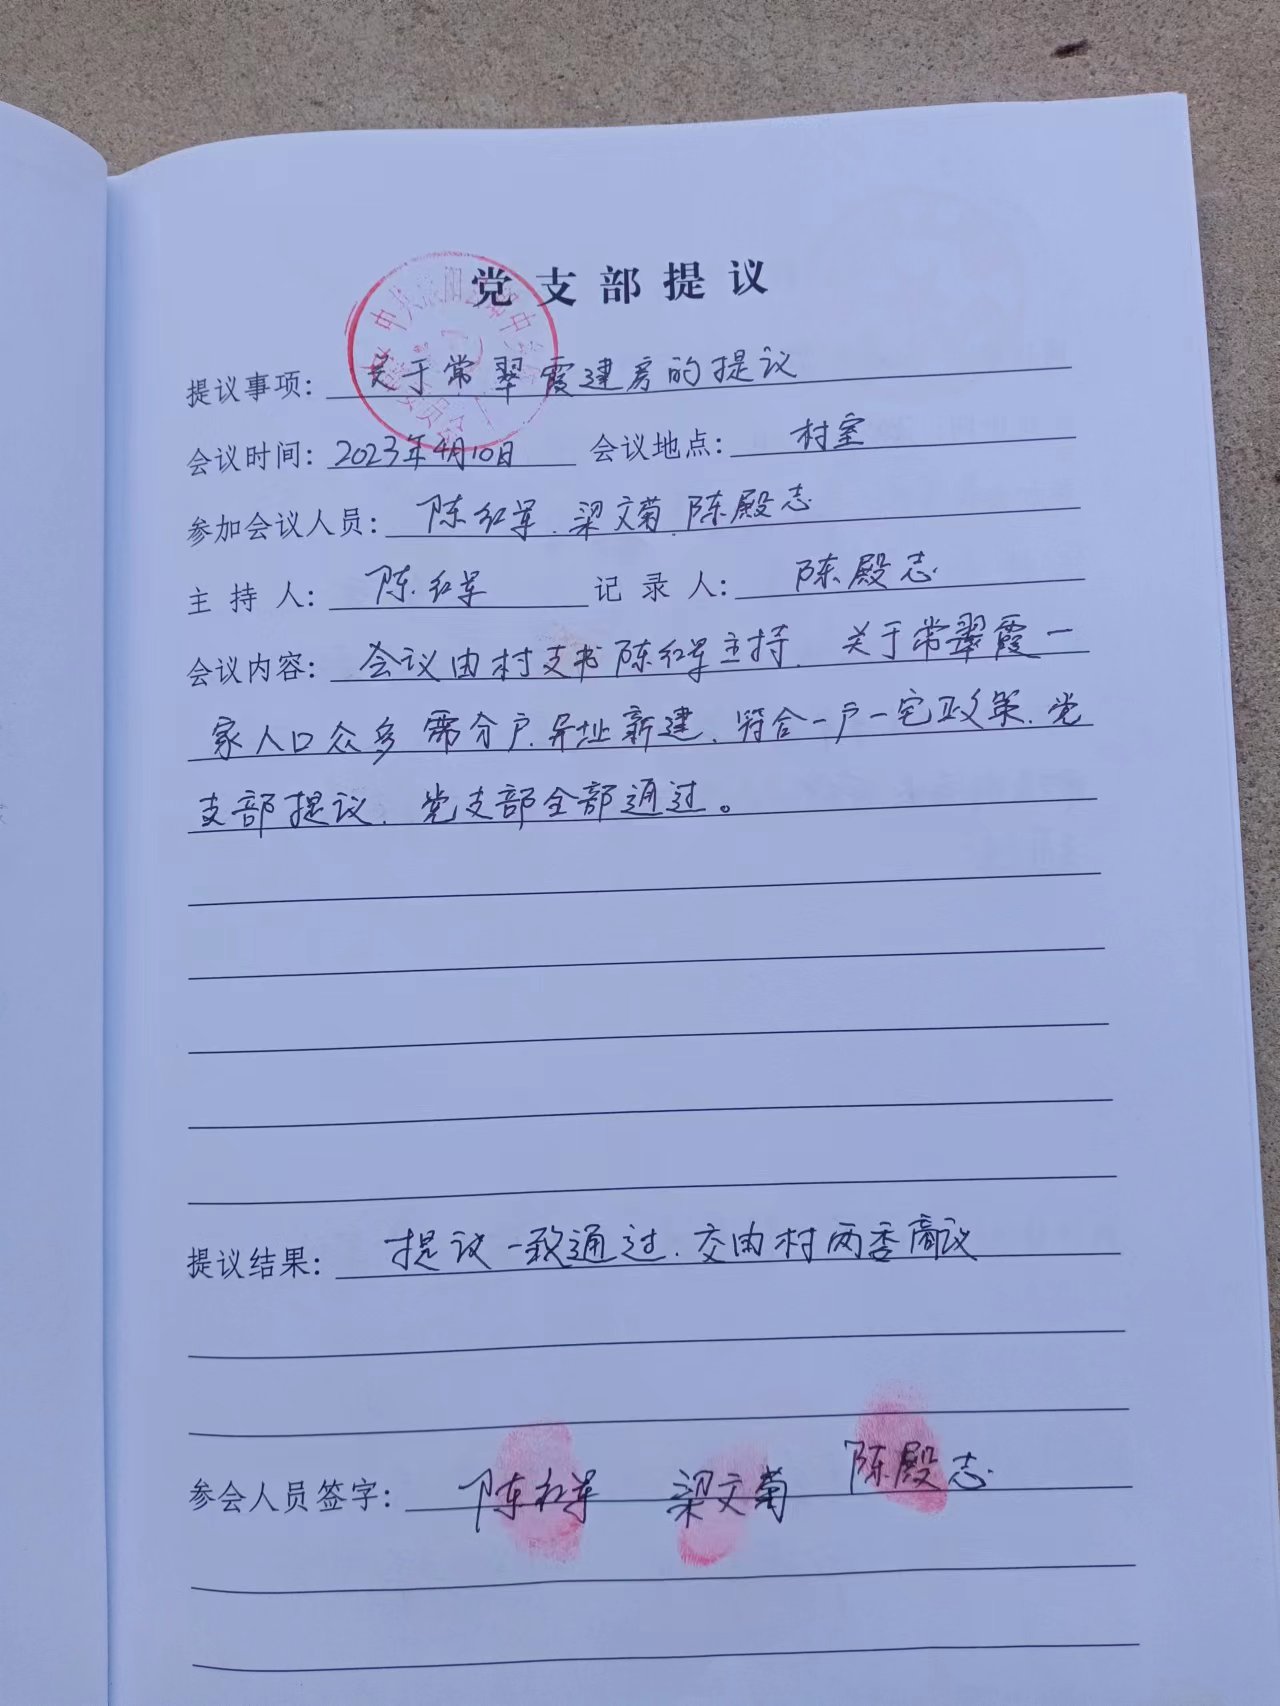 党支部提议
提议事项：关于常翠霞建房的提议
会议时间：2023年4月10日 会议地点：村室
参加会议人员：陈红军、梁文菊、陈殿志
主持人：陈红军 记录人：陈殿志
会议内容：会议由村支书陈红军主持、关于常翠霞一
家人口众多需分户、异址新建、符合一户一宅政策、党
支部提议、党支部全部通过。
提议结果：提议一致通过、交由村两委商议
参会人员签字：陈红军 梁文菊 陈殿志